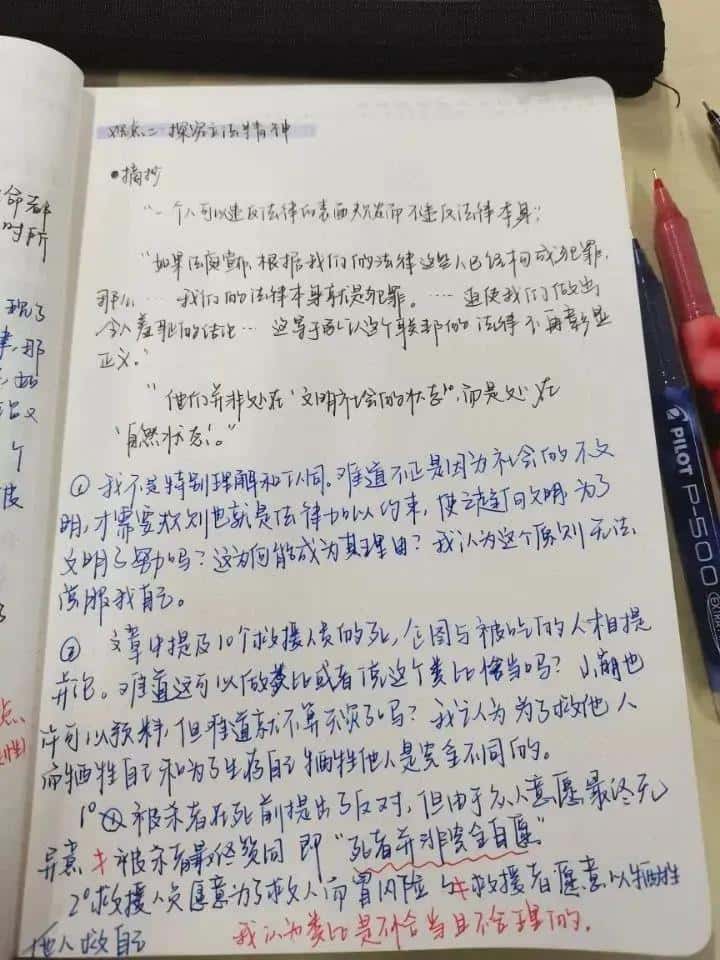 命都
时所
现了
律,那
义
个
度
观点二 探究立法精神
•摘抄
“一个人可以违反法律的表面规定而不违反法律本身”
“如果法庭宣布,根据我们的法律这些人已经构成犯罪,
那么……我们的法律本身就是犯罪。……迫使我们做出
令人羞耻的结论…这等于承认这个联邦的法律不再彰显
正义。”
“他们并非处在‘文明社会的状态’,而是处在
‘自然状态’。”
① 我不是特别理解和认同。难道不正是因为社会的不文
明,才需要规则也就是法律加以约束,使之走向文明,为了
文明而努力吗?这为何能成为其理由?我认为这个原则无法
说服我自己。
② 文章中提及10个救援人员的死,企图与被吃的人相提
并论。难道这可以做类比或者说这个类比恰当吗?山崩也
许可以预料,但难道就不算天灾了吗?我认为为了救他人
而牺牲自己和为了生存自己牺牲他人是完全不同的。
1° 被杀者在死前提出了反对,但由于众人意愿最终无
异意 ≠ 被杀者最终赞同 即“死者并非完全自愿”
2°救援人员愿意为了救人而冒风险 ≠ 救援者愿意以牺牲
他人救自己
我认为类比是不恰当且不合理的.
PILOT P-500